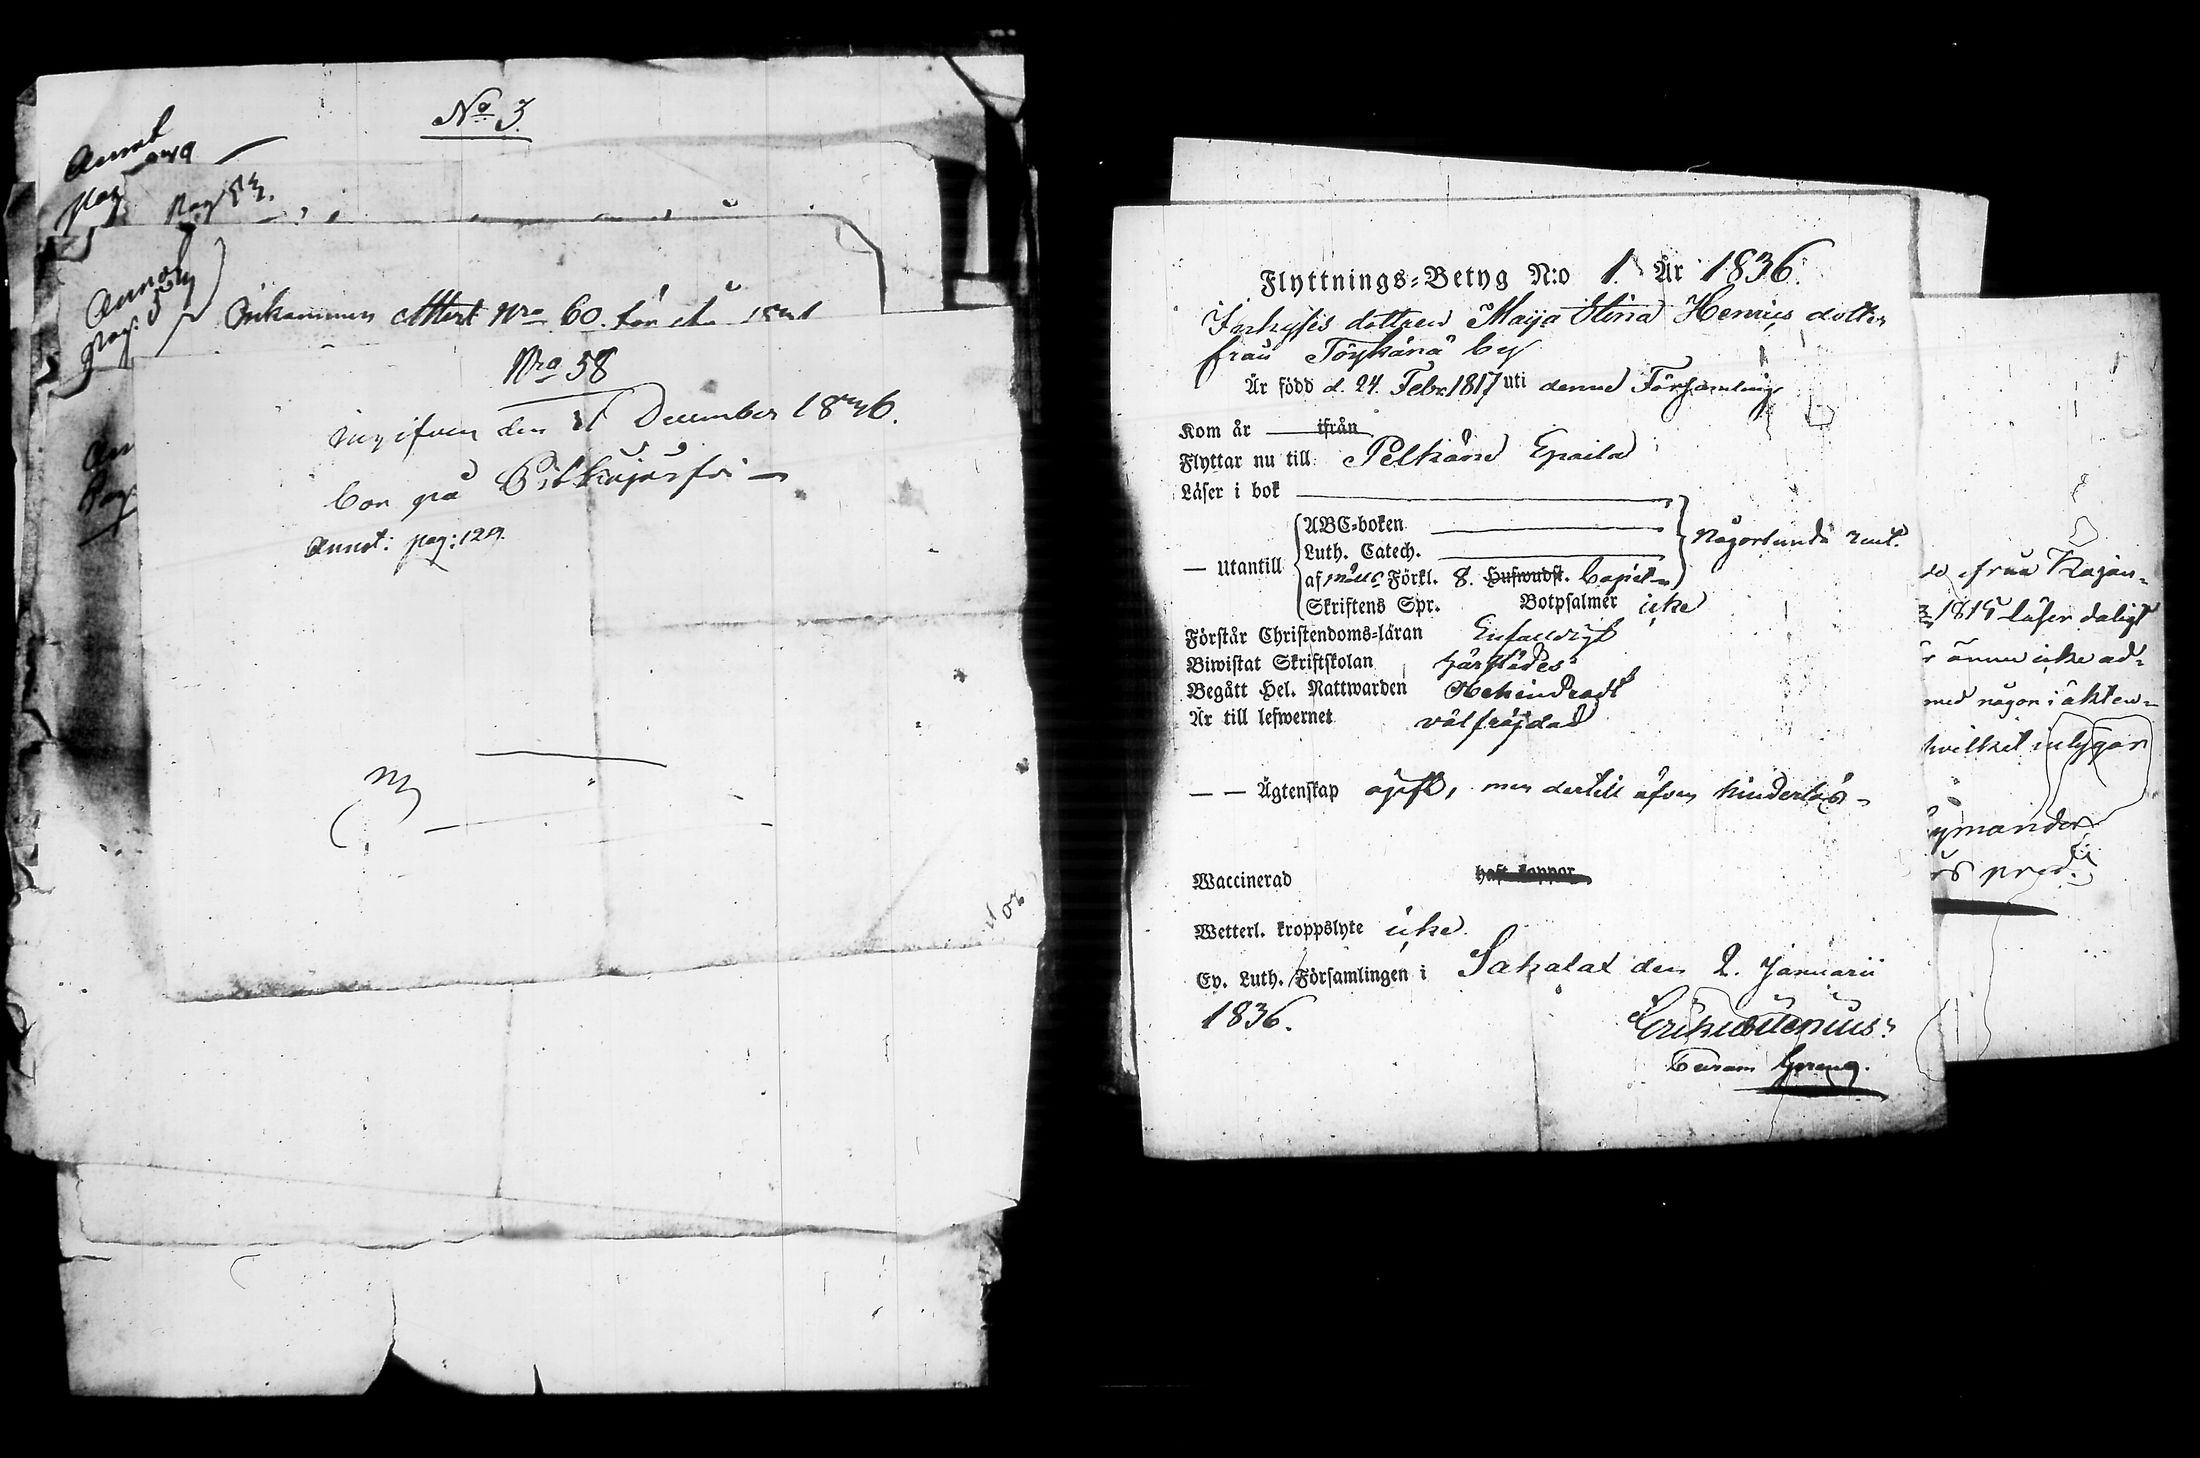 No 3
Annot
pag
Pag 83.
Annot
pag:
Inkommen Attest Nro 60. för
Nro 58
ingifven den December 1836.
bor på
Annot: pag: 129.
Flyttnings-Betyg N:o 1. År 1836.
Inhyses dottren Maija Stina Henrics dotter
från Töykänä by
Är född d. 24. Febr. 1817 uti denna Församling
Kom år ifrån
Flyttar nu till Pelkäne Epaila
Läser i bok
ABC-boken
Luth. Catech.
Någorlunda rent.
— Utantill
af Förkl. 8. Hufwudst. Capitn
Skriftens Spr. Botpsalmer icke
Förstår Christendoms-läran Enfalldigt
Biwistat Skriftskolan härstädes
Begått Hel. Nattwarden Obehindradt
Är till lefwernet välfräjdad
— — Ägtenskap ogift, men dertill äfven hinderlös
Waccinerad haft koppor
Wetterl. kroppslyte icke
Ev. Luth. Församlingen i Sahalax den 2. Januarii
1836.
från Kajan-
1815 Läser daligt
ännu icke ad-
med någon i äkten-
hwilket intygar